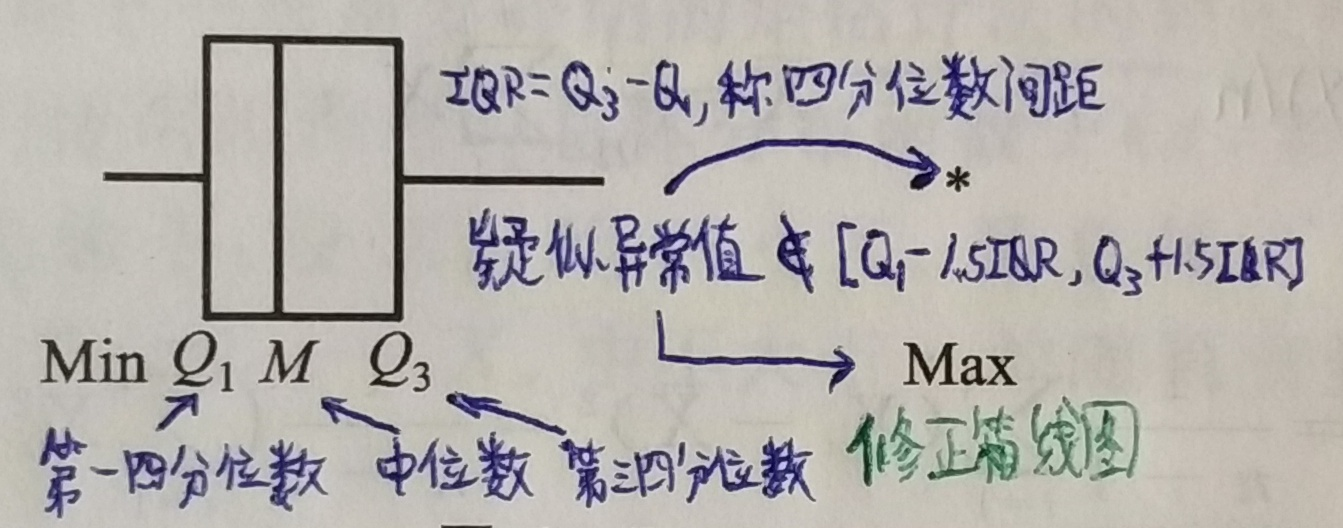 IQR=Q₃-Q₁,称四分位数间距
*
疑似异常值∉[Q₁-1.5IQR,Q₃+1.5IQR]
Min Q₁ M Q₃ Max
第一四分位数 中位数 第三四分位数 修正箱线图